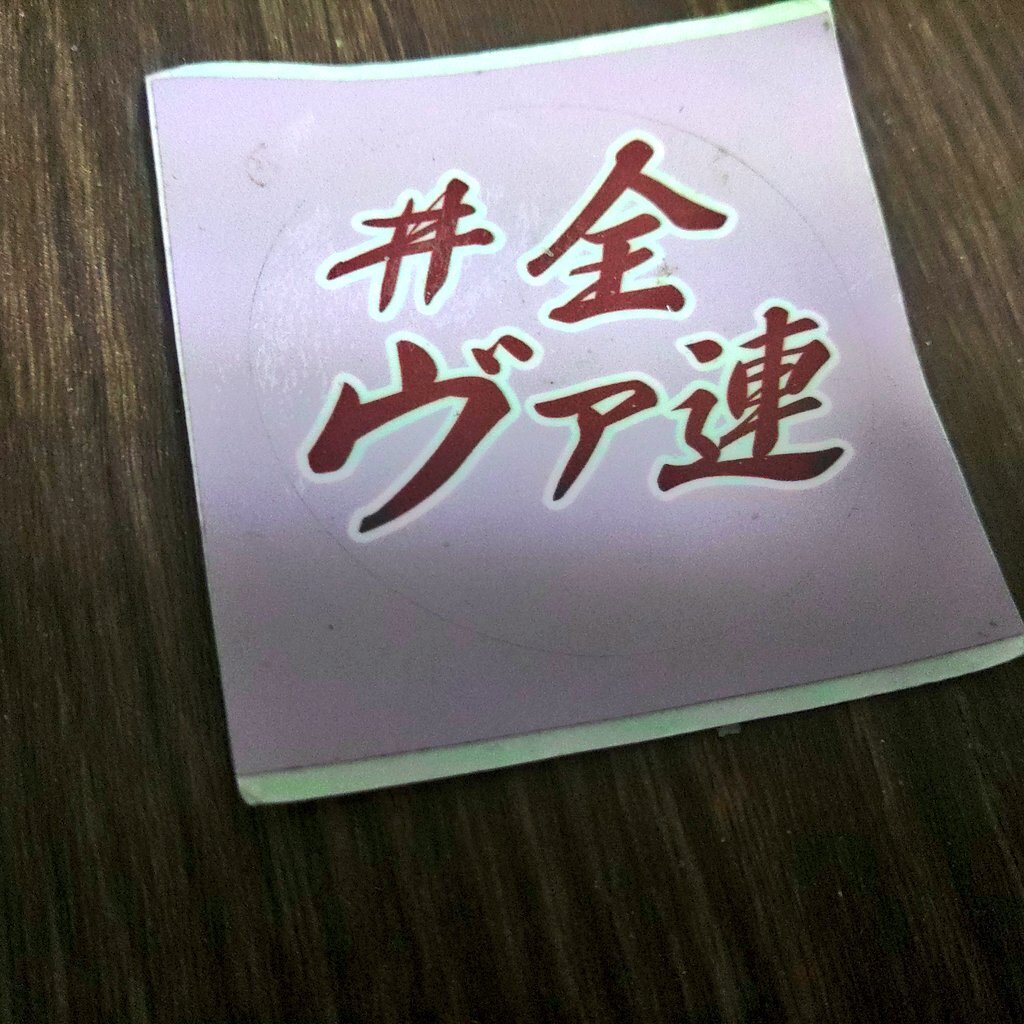 #全
ヴァ連